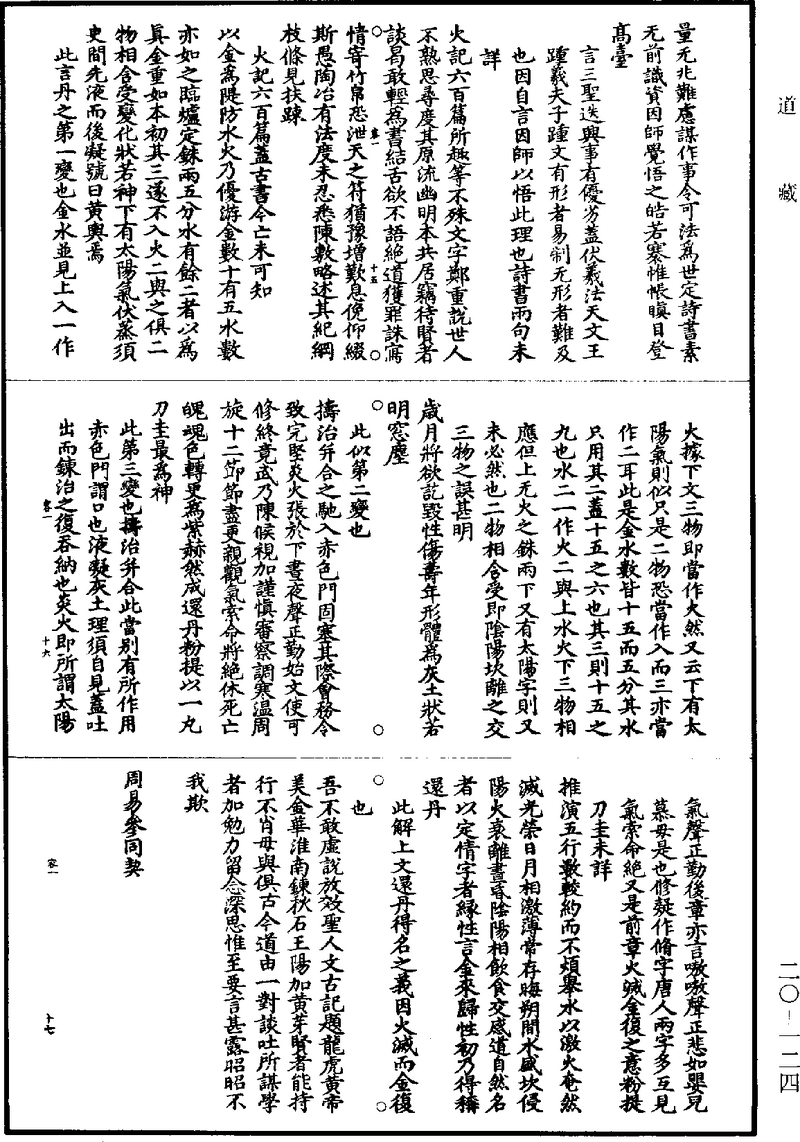 道藏
量无兆難慮謀作事令可法為世定詩書素
无前識資因師覺悟之皓若褰帷帳瞋目登
髙臺
言三聖迭興事有優劣蓋伏羲法天文王
踵羲夫子踵文有形者易制无形者難及
也因自言因師以悟此理也詩書兩句未
詳
火記六百篇所趣等不殊文字鄭重說世人
不熟思尋度其原流幽明本共居竊待賢者
談曷敢輕為書結舌欲不語絕道獲罪誅寫
情寄竹帛恐泄天之符猶豫增歎息俛仰綴
斯愚陶冶有法度未忍悉陳數略述其紀綱
枝條見扶踈
火記六百篇蓋古書今亡未可知
以金為隄防水火乃優游金數十有五水數
亦如之臨爐定銖兩五分水有餘二者以為
真金重如本初其三遂不入火二與之俱二
物相含受變化狀若神下有太陽氣伏蒸須
臾間先液而後凝號曰黃輿焉
此言丹之第一變也金水並見上入一作
火據下文三物即當作火然又云下有太
陽氣則似只是二物恐當作入而三亦當
作二耳此是金水數皆十五而五分其水
只用其二蓋十五之六也其三則十五之
九也水二一作火二與上水火下三物相
應但上无火之銖兩下又有太陽字則又
未必然也二物相含受即陰陽坎離之交
三物之誤甚明
歲月將欲訖毀性傷壽年形體為灰土狀若
明窓塵
此似第二變也
擣治并合之馳入赤色門固塞其際會務令
致完堅炎火張於下晝夜聲正勤始文使可
修終竟武乃陳候視加謹慎審察調寒温周
旋十二節節盡更親觀氣索命將絕休死亡
魄魂色轉更為紫赫然成還丹粉提以一丸
刀圭最為神
此第三變也擣治并合此當别有所作用
赤色門謂口也液凝灰土理須自見蓋吐
出而鍊治之復吞納也炎火即所謂太陽
氣聲正勤後章亦言嗷嗷聲正悲如嬰兒
慕母是也修疑作脩字唐人兩字多互見
氣索命絕又是前章火滅金復之意粉提
刀圭未詳
推演五行數較約而不煩舉水以激火奄然
滅光榮日月相激薄常存晦朔間水盛坎侵
陽火衰離晝昏陰陽相飲食交感道自然名
者以定情字者縁性言金來歸性初乃得稱
還丹
此解上文還丹得名之義因火滅而金復
也
吾不敢虛說放效聖人文古記題龍虎黃帝
美金華淮南鍊秋石王陽加黃芽賢者能持
行不肖毋與俱古今道由一對談吐所謀學
者加勉力留念深思惟至要言甚露昭昭不
我欺
周易參同契
容一
十五
容一
十六
容一
十七
二〇-一二四